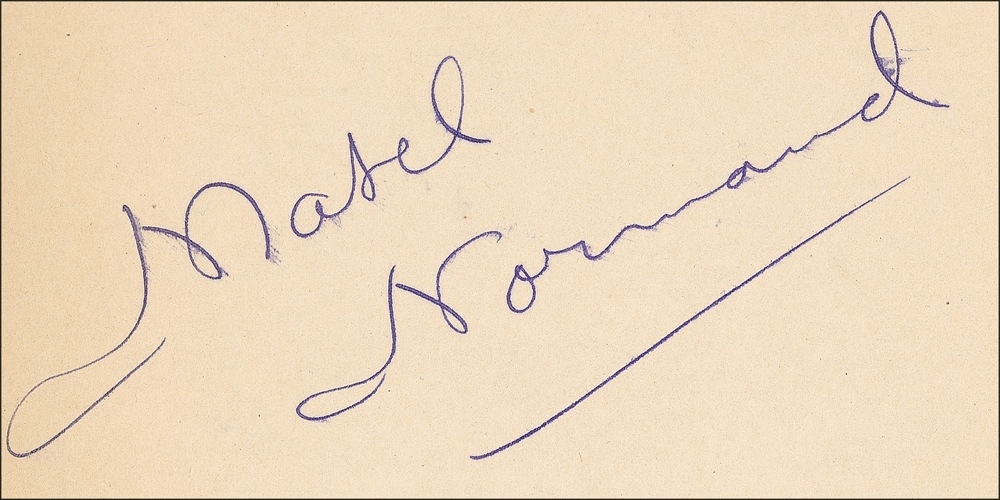 Mabel
Normand